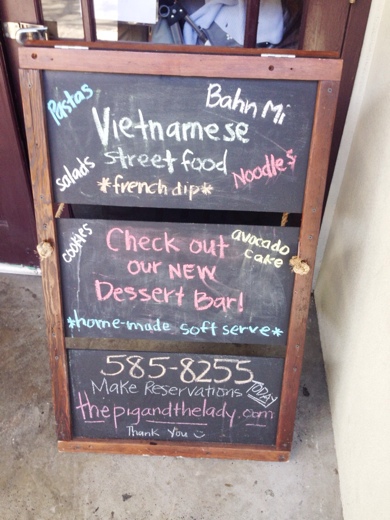 Pastas
Bahn Mi
Vietnamese
street food
salads
Noodles
*french dip*
cookies
Check out
avocado
cake
our NEW
Dessert Bar!
*home-made soft serve*
585-8255
Make Reservations TODAY
thepigandthelady.com
Thank You